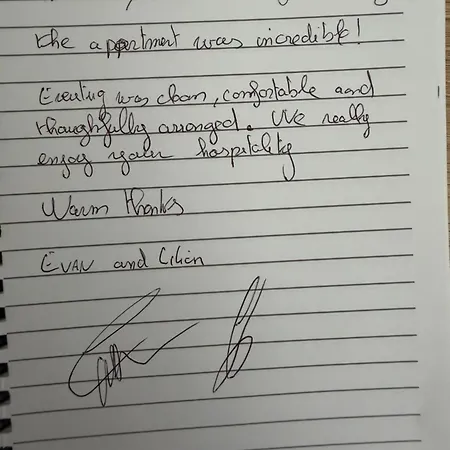 the apartment was incredible!
was clean, comfortable and
thoughfully arranged. We really
enjoy your hospitality
Warm thanks
EVAN and